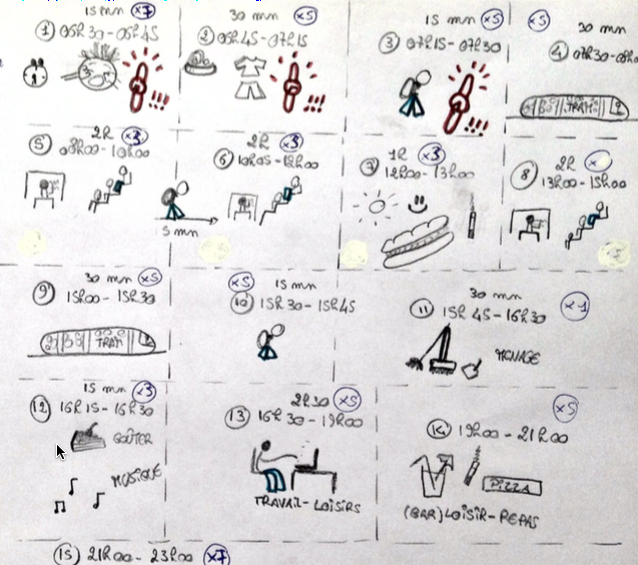 15 mn x7
① 05h30-05h45
30 mn x5
② 05h45-07h15
15 mn x5
③ 07h15-07h30
x5 30 mn
④ 07h30-08h0
2h x3
⑤ 08h00-10h00
15 mn
2h x3
⑥ 10h05-12h00
1h x3
⑦ 12h00-13h00
2h
⑧ 13h00-15h00
30 mn x5
⑨ 15h00-15h30
TRAM
x5 15 mn
⑩ 15h30-15h45
30 mn
⑪ 15h45-16h30 x1
MENAGE
15 mn x3
⑫ 16h15-16h30
GOÛTER
MUSIQUE
2h30 x5
⑬ 16h30-19h00
TRAVAIL-LOISIRS
x5
⑭ 19h00-21h00
PIZZA
(BAR) LOISIR-REPAS
⑮ 21h00-23h00 x7